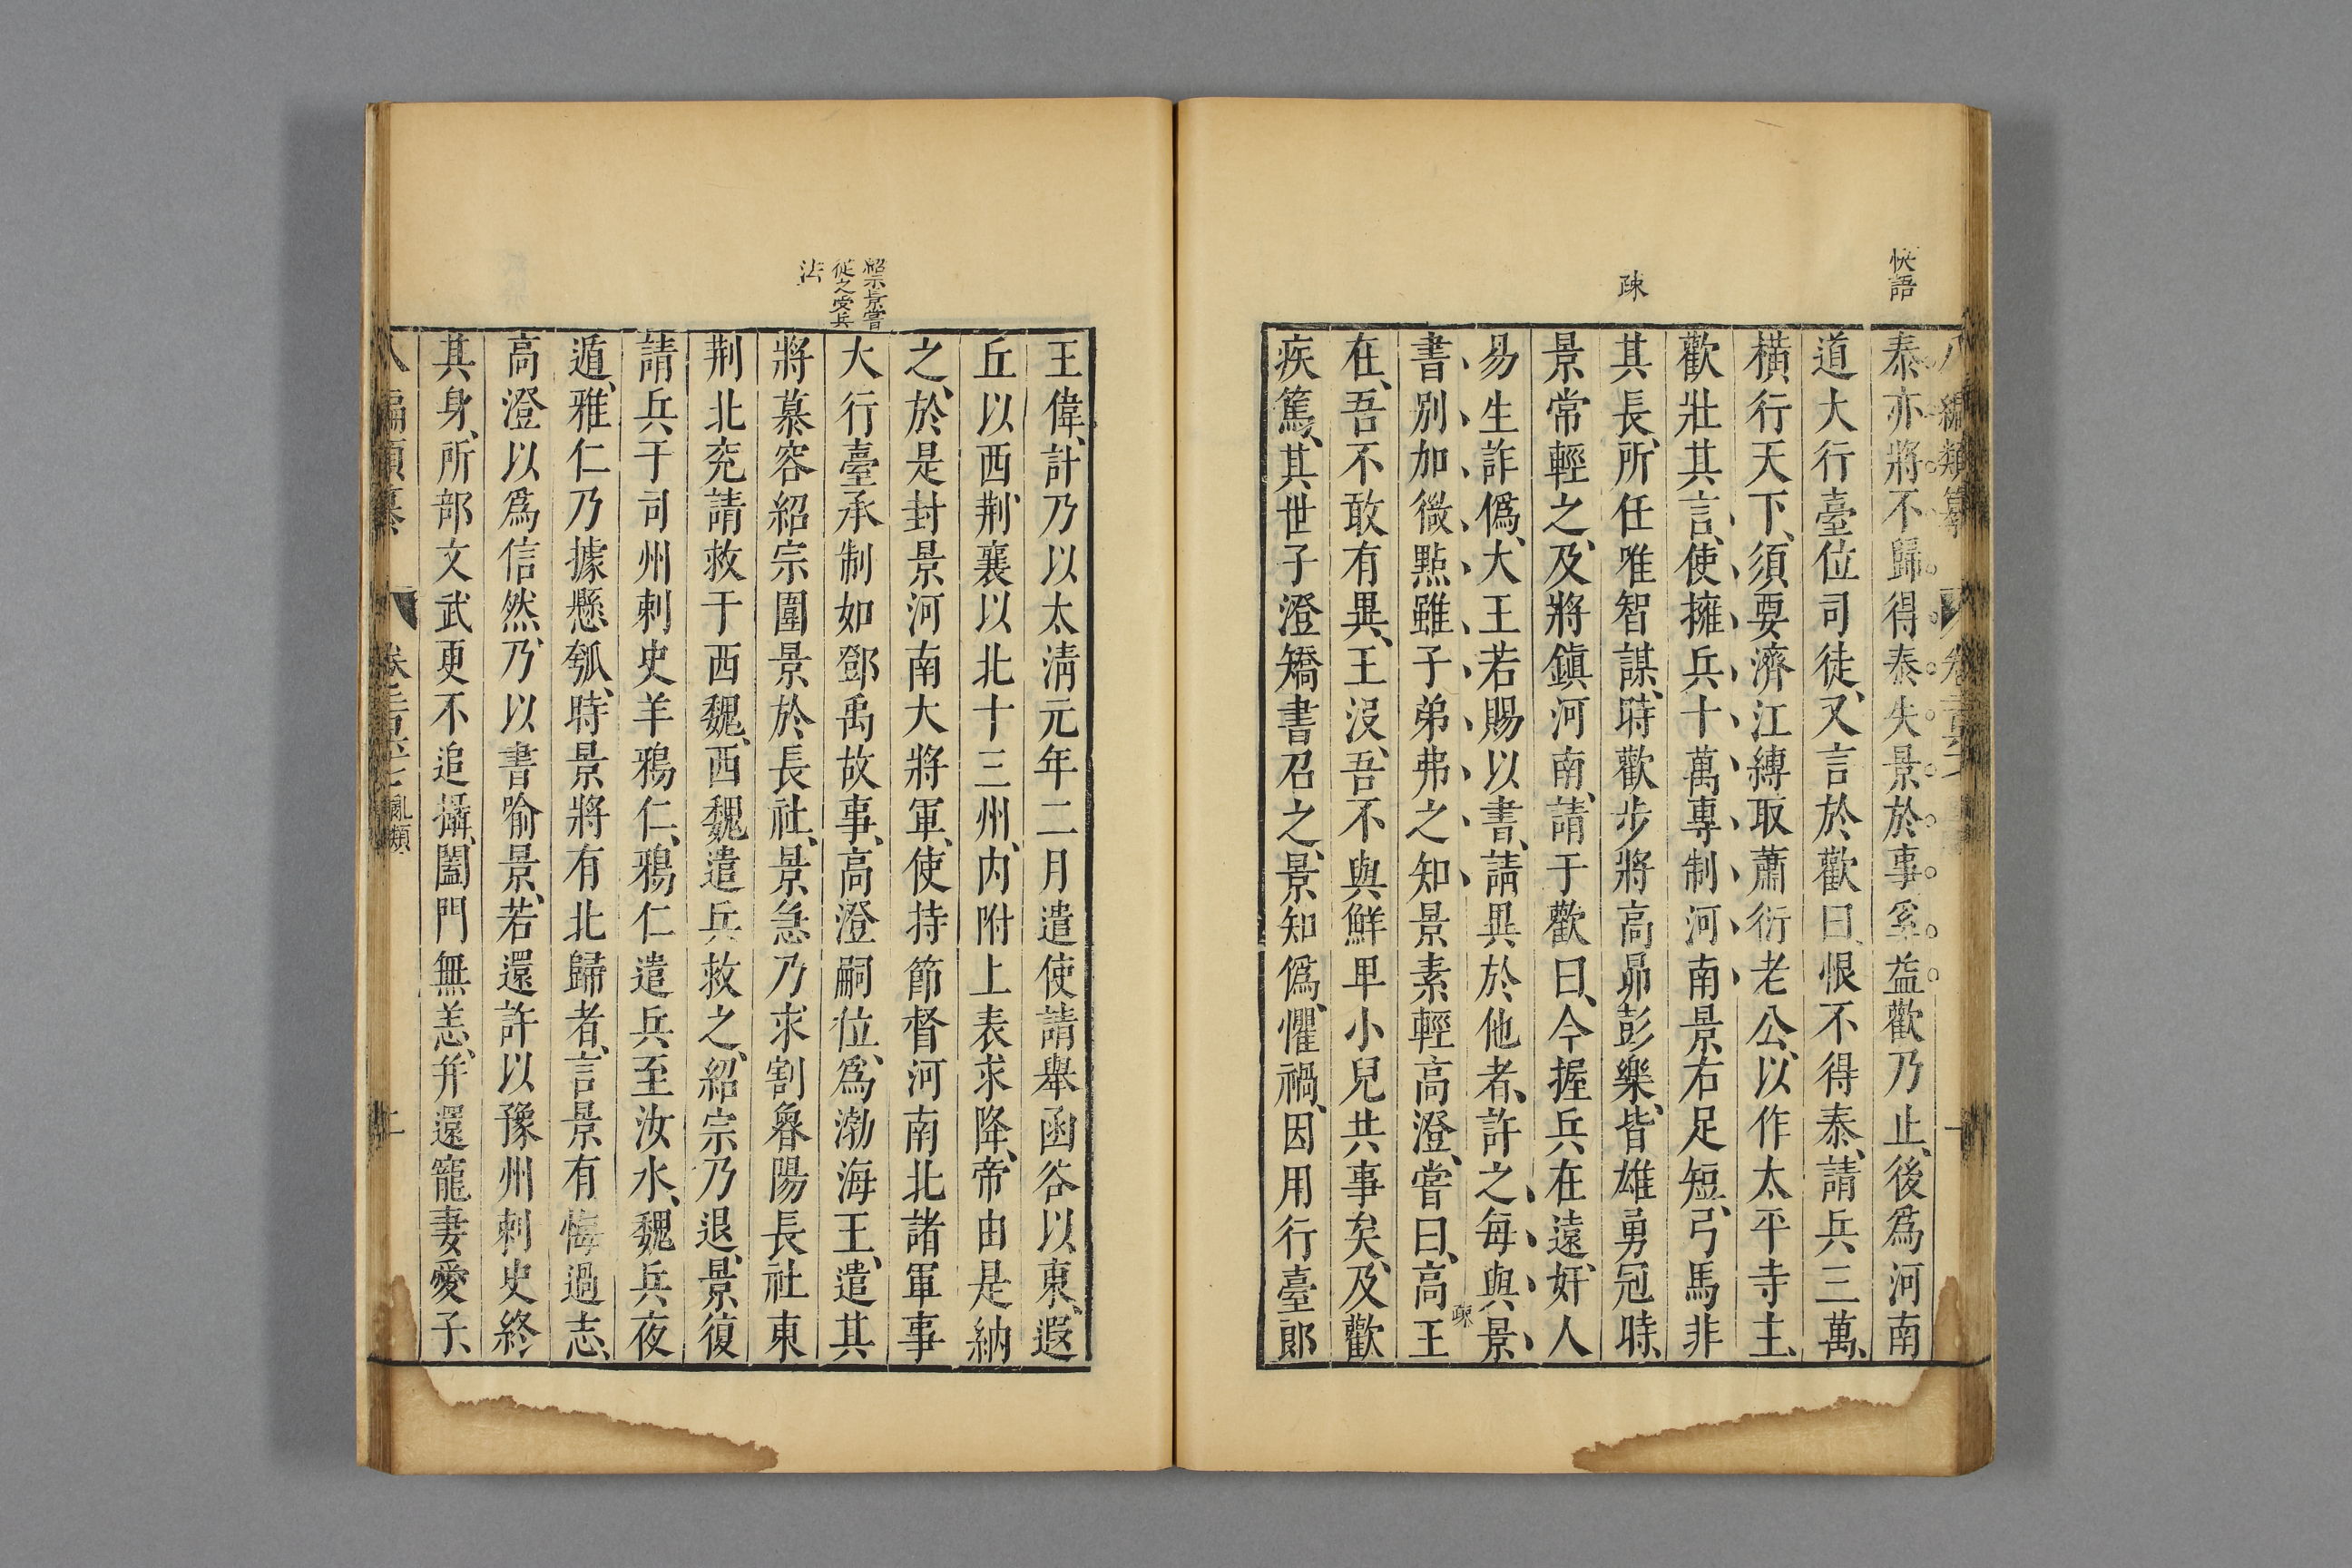 快語
疎
泰亦將不歸得泰失景於事奚益歡乃止、後爲河南
道大行臺位司徒、又言於歡曰、恨不得泰、請兵三萬、
橫行天下、須要濟江縛取蕭衍老公、以作太平寺主、
歡壯其言、使擁兵十萬專制河南景右足短、弓馬非
其長、所任唯智謀、時歡步將高昴彭樂、皆雄勇冠時、
景常輕之、及將鎮河南、請于歡曰、今握兵在遠、奸人
易生詐僞、大王若賜以書、請異於他者、許之每與景
疎
書別加微點雖子弟弗之知景素輕高澄、嘗曰、高王
在、吾不敢有異、王沒、吾不與鮮卑小兒共事矣、及歡
疾篤、其世子澄矯書召之、景知僞、懼禍、因用行臺郎
紹宗景嘗
從之受兵
法
王偉、計乃以太淸元年二月遣使請舉函谷以東、遐
丘以西荆、襄以北十三州、內附上表求降、帝由是納
之、於是封景河南大將軍、使持節督河南北諸軍事
大行臺承制如鄧禹故事、高澄嗣位、爲渤海王、遣其
將慕容紹宗圍景於長社、景急乃求割魯陽長社東
荆北兖請救于西魏、西魏遣兵救之、紹宗乃退、景復
請兵于司州刺史羊鴉仁、鴉仁遣兵至汝水、魏兵夜
遁、雅仁乃據懸瓠、時景將有北歸者、言景有悔過志、
高澄以爲信然、乃以書喻景、若還許以豫州刺史終
其身、所部文武更不追攝、闔門無恙、幷還寵妻愛子、